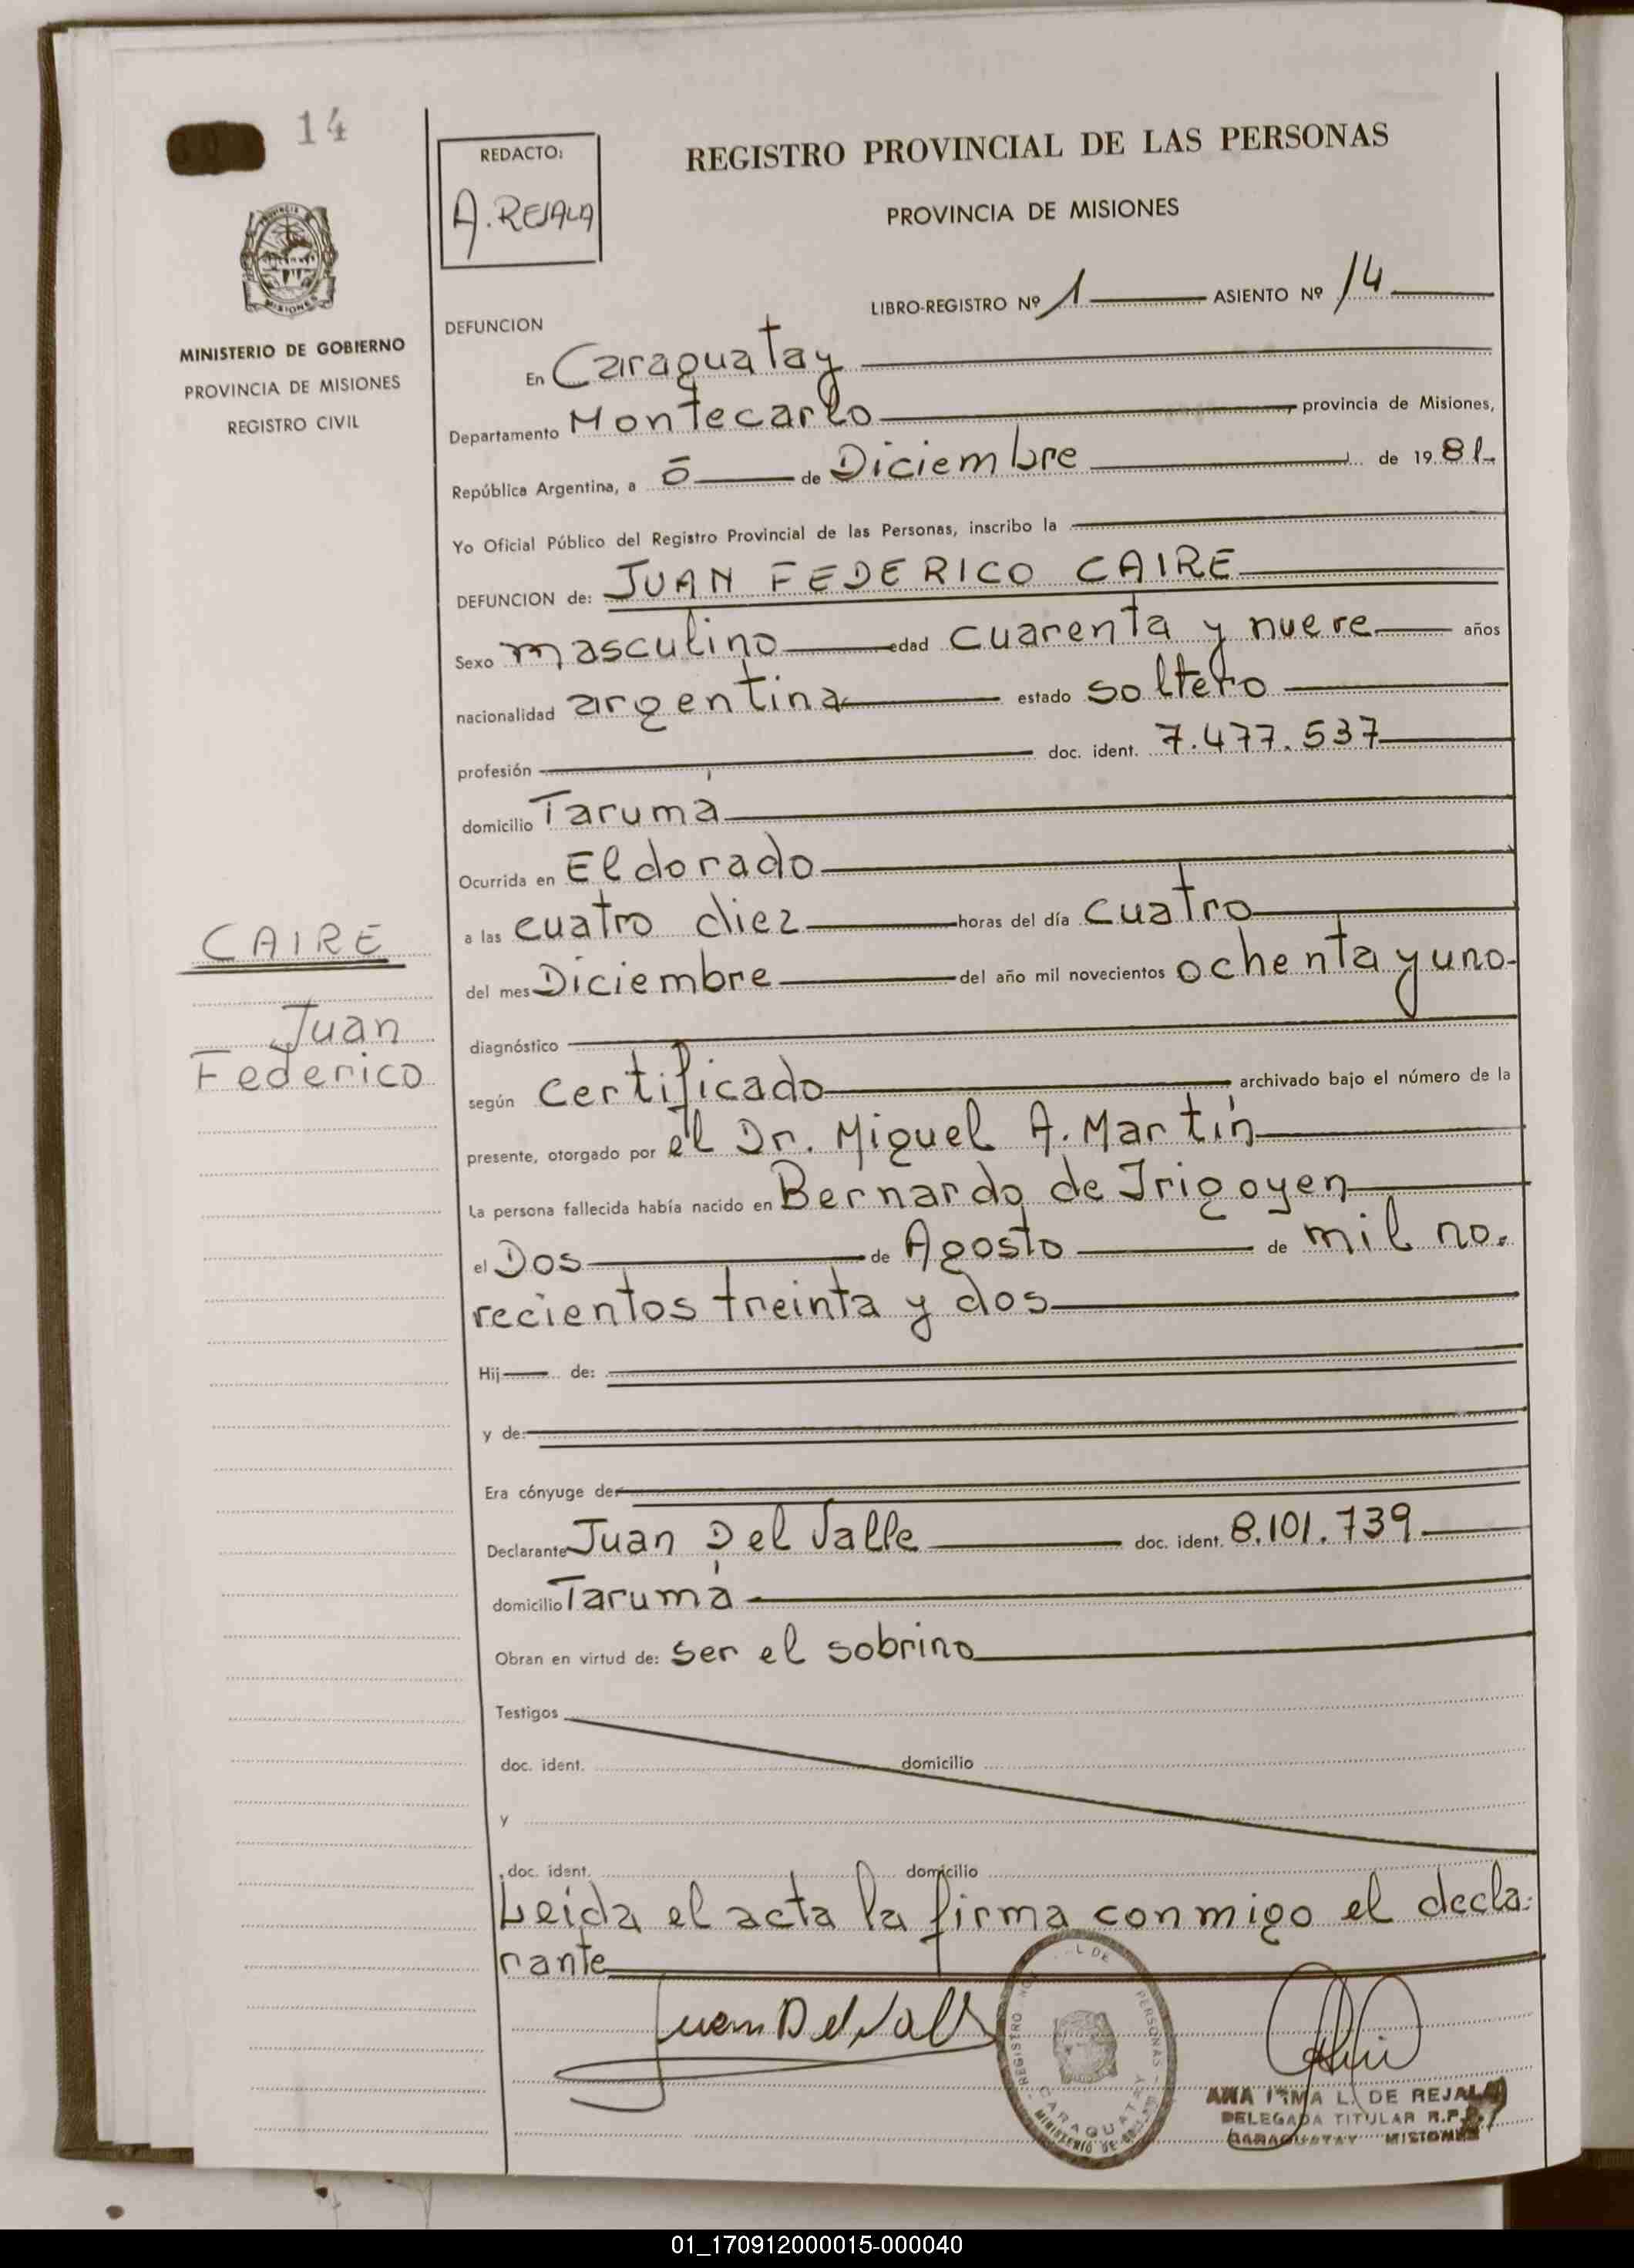 14
REDACTO:
A. REJALA
REGISTRO PROVINCIAL DE LAS PERSONAS
PROVINCIA DE MISIONES
LIBRO-REGISTRO Nº 1 ASIENTO Nº 14
MINISTERIO DE GOBIERNO
PROVINCIA DE MISIONES
REGISTRO CIVIL
DEFUNCION
En Caraguatay
Departamento Montecarlo provincia de Misiones,
República Argentina, a de Diciembre de 1981.
Yo Oficial Público del Registro Provincial de las Personas, inscribo la
DEFUNCION de: JUAN FEDERICO CAIRE
Sexo masculino edad cuarenta y nueve años
nacionalidad argentina estado soltero
profesión doc. ident. 7.477.537
domicilio Taruma
Ocurrida en Eldorado
a las cuatro diez horas del día cuatro
del mes Diciembre del año mil novecientos ochenta y uno-
CAIRE
Juan
Federico
diagnóstico
según certificado archivado bajo el número de la
presente, otorgado por el Dr. Miguel A. Martín
La persona fallecida había nacido en Bernardo de Irigoyen
el Dos de Agosto de mil no.
vecientos treinta y dos
Hij de:
y de:
Era cónyuge de
Declarante Juan Del Valle doc. ident. 8.101.739
domicilio Tarumá
Obran en virtud de: ser el sobrino
Testigos
doc. ident. domicilio
y
doc. ident. domicilio
Leida el acta la firma conmigo el decla-
rante
Juan Del Valle
REGISTRO L DE PERSONAS
CARAGUATAY
MINISTERIO DE
ANA IRMA L. DE REJALA
DELEGADA TITULAR R.P.P.
CARAGUATAY MISIONES
01_170912000015-000040